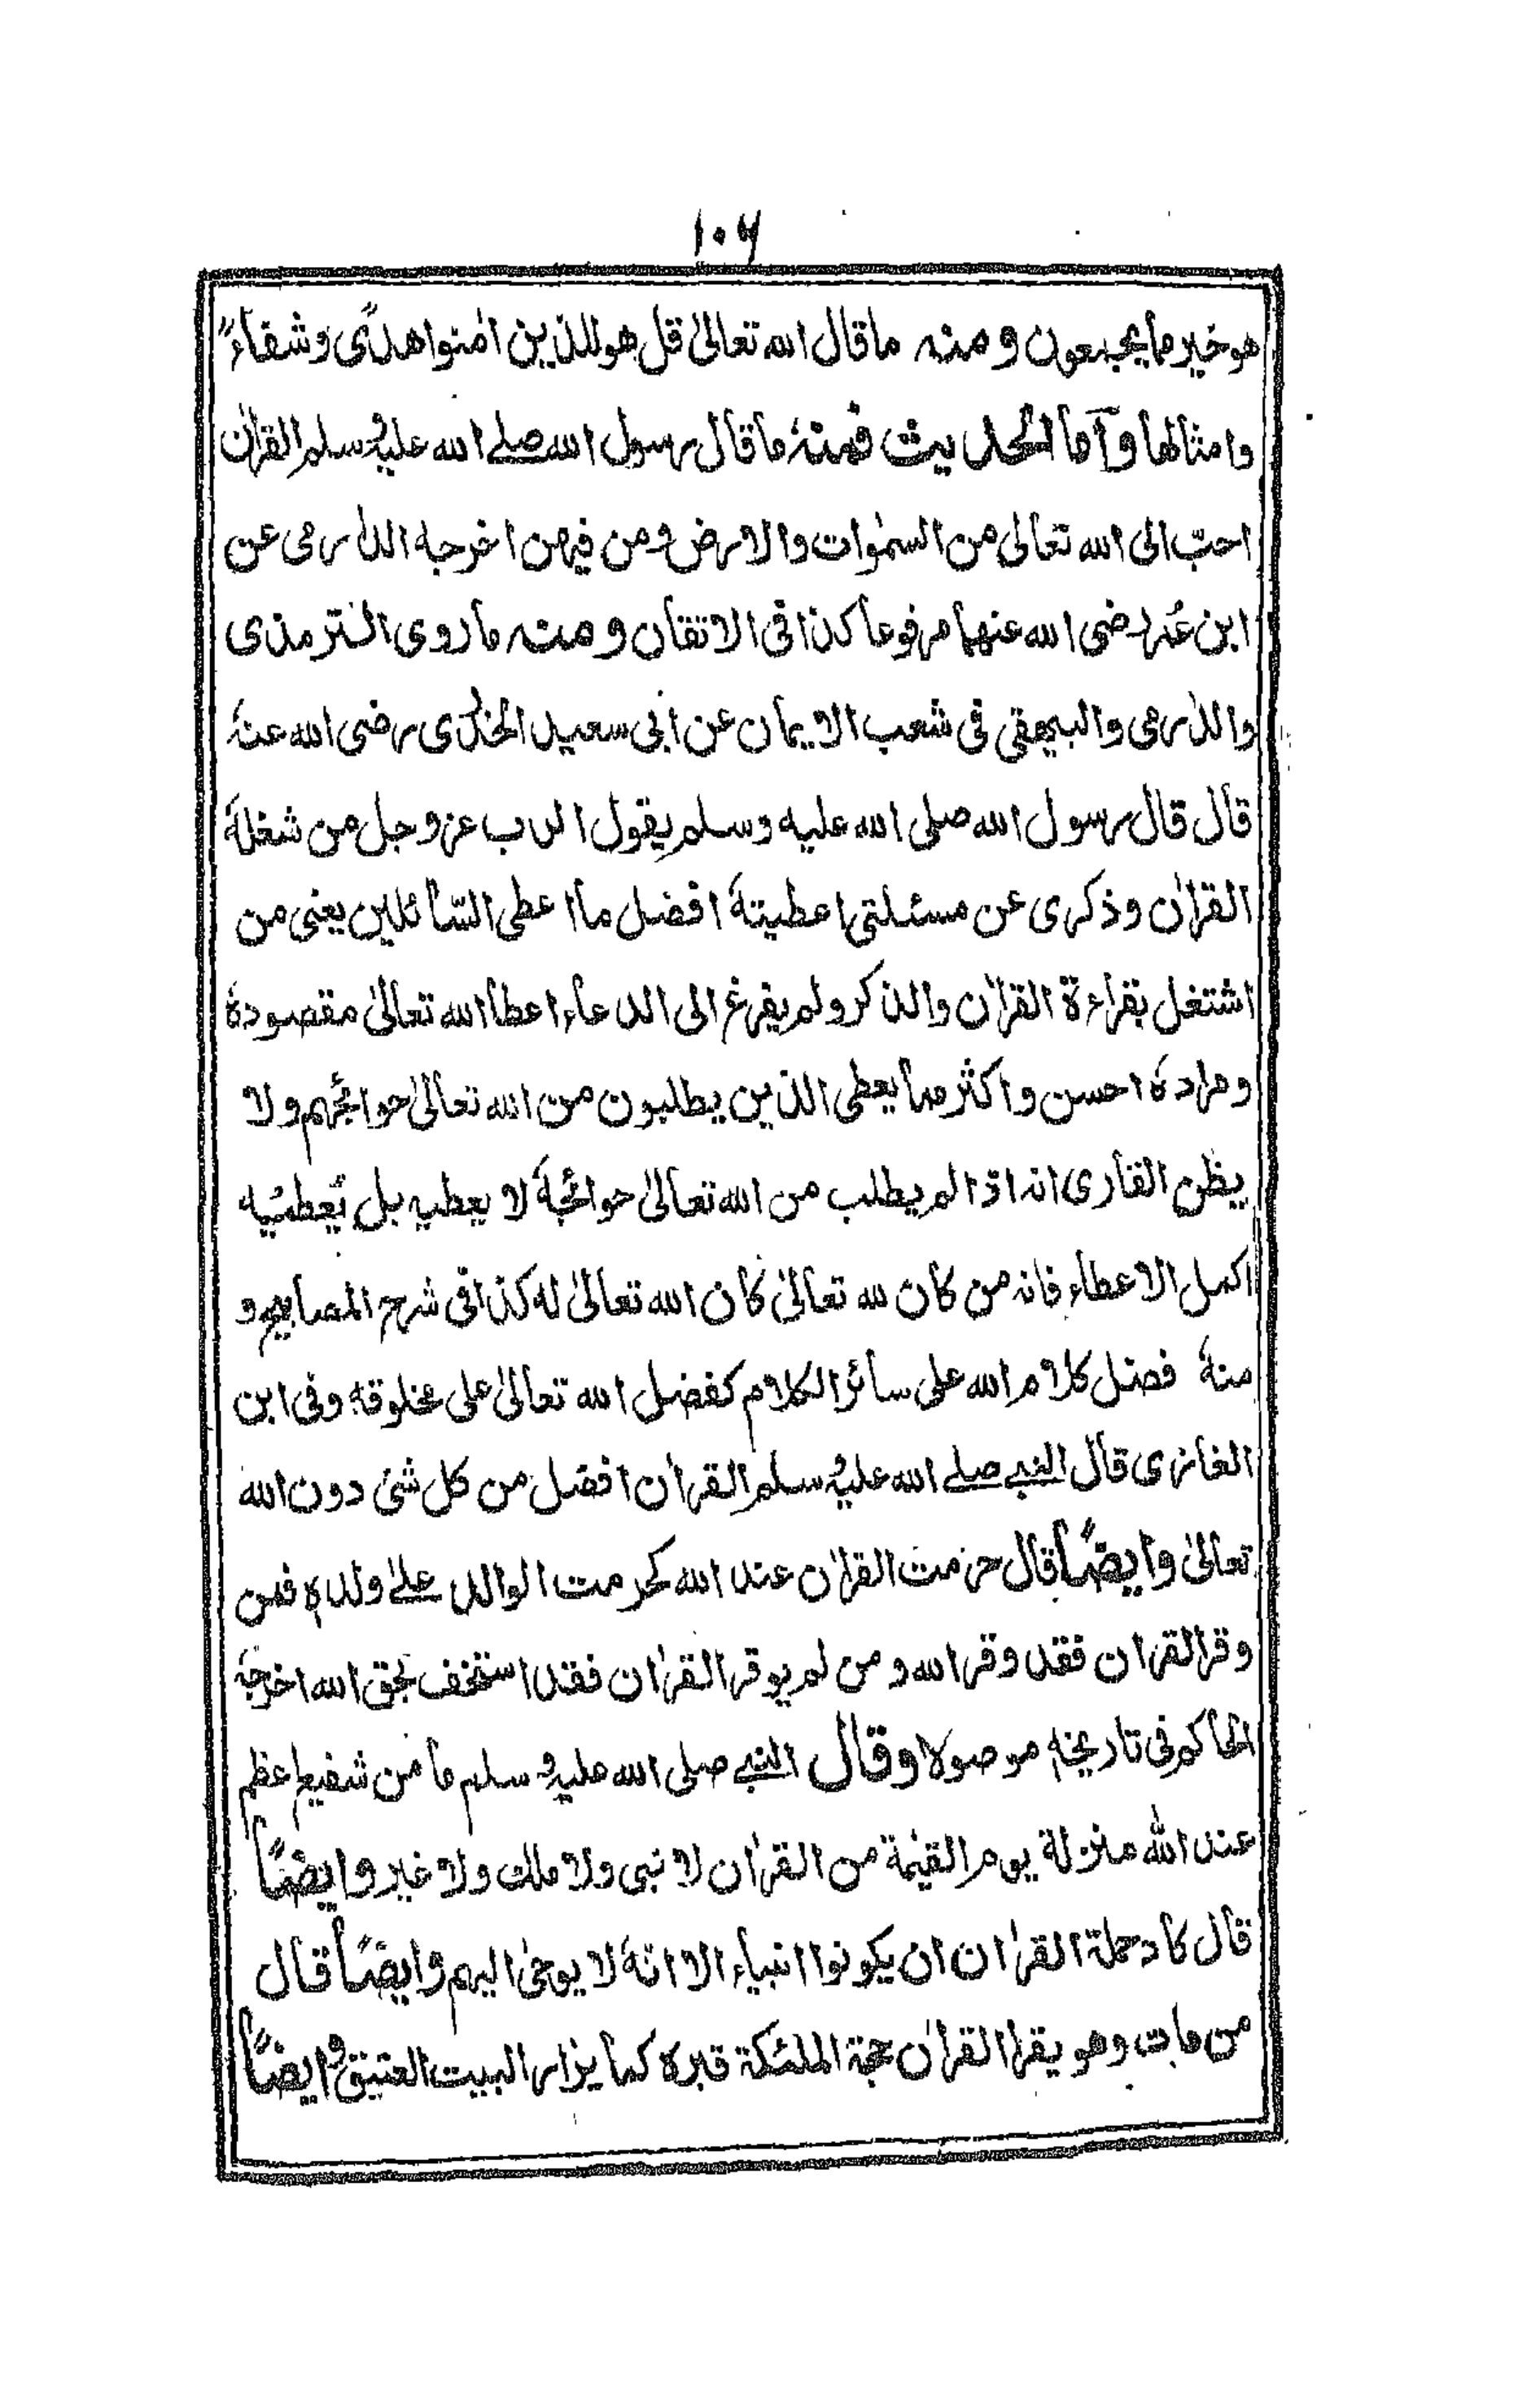 ۱۰۶
هو خير مما يجمعون ومنه ما قال الله تعالىٰ قل هو للذين اٰمنوا هدًى وشفاءً
وامثالها وآما الحديث فمنهٗ ما قال رسول الله صلے الله عليهٖ وسلم القراٰن
احبّ الى الله تعالىٰ من السمٰوات والارض ومن فيهن اخرجه الدارمى عن
ابن عُمر رضى الله عنهما مرفوعا كذا فى الاتقان ومنه ما روى الترمذى
والدارمى والبيهقى فى شعب الايمان عن ابى سعيد الخدرى رضى الله عنهٗ
قال قال رسول الله صلى الله عليه وسلم يقول الرب عز وجل من شغلهٗ
القراٰن وذكرى عن مسئلتى اعطيتهٗ افضل ما اعطى السّائلين يعنى من
اشتغل بقراءة القراٰن والذكر ولم يفرغ الى الدعاء اعطا الله تعالىٰ مقصودهٗ
ومرادهٗ احسن واكثر مما يعطى الذين يطلبون من الله تعالىٰ حوائجهم ولا
يظن القارى انه اذا لم يطلب من الله تعالىٰ حوائجهٗ لا يعطيه بل يُعطيه
اكمل الاعطاء فانه من كان لله تعالىٰ كان الله تعالىٰ له كذا فى شرح المصابيح و
منهٗ فضل كلام الله على سائر الكلام كفضل الله تعالىٰ على مخلوقه وفى ابن
الغازى قال النبے صلے الله عليهٖ وسلم القراٰن افضل من كل شئ دون الله
تعالىٰ وايضًا قال حرمت القراٰن عند الله كحرمت الوالد علےٰ ولده فمن
وقر القراٰن فقد وقر الله ومن لم يوقر القراٰن فقد استخف بحق الله اخرجهٗ
الحاكم فى تاريخه موصولا وقال النبے صلى الله عليهٖ وسلم ما من شفيع اعظم
عند الله منزلة يوم القيٰمة من القراٰن لا نبى ولا ملك ولا غير وايضًا
قال كاد حملة القراٰن ان يكونوا انبياء الا انهٗ لا يوحىٰ اليهم وايضًا قال
من مات وهو يقرا القراٰن حجة الملئكة قبره كما يزار البيت العتيق وايضًا